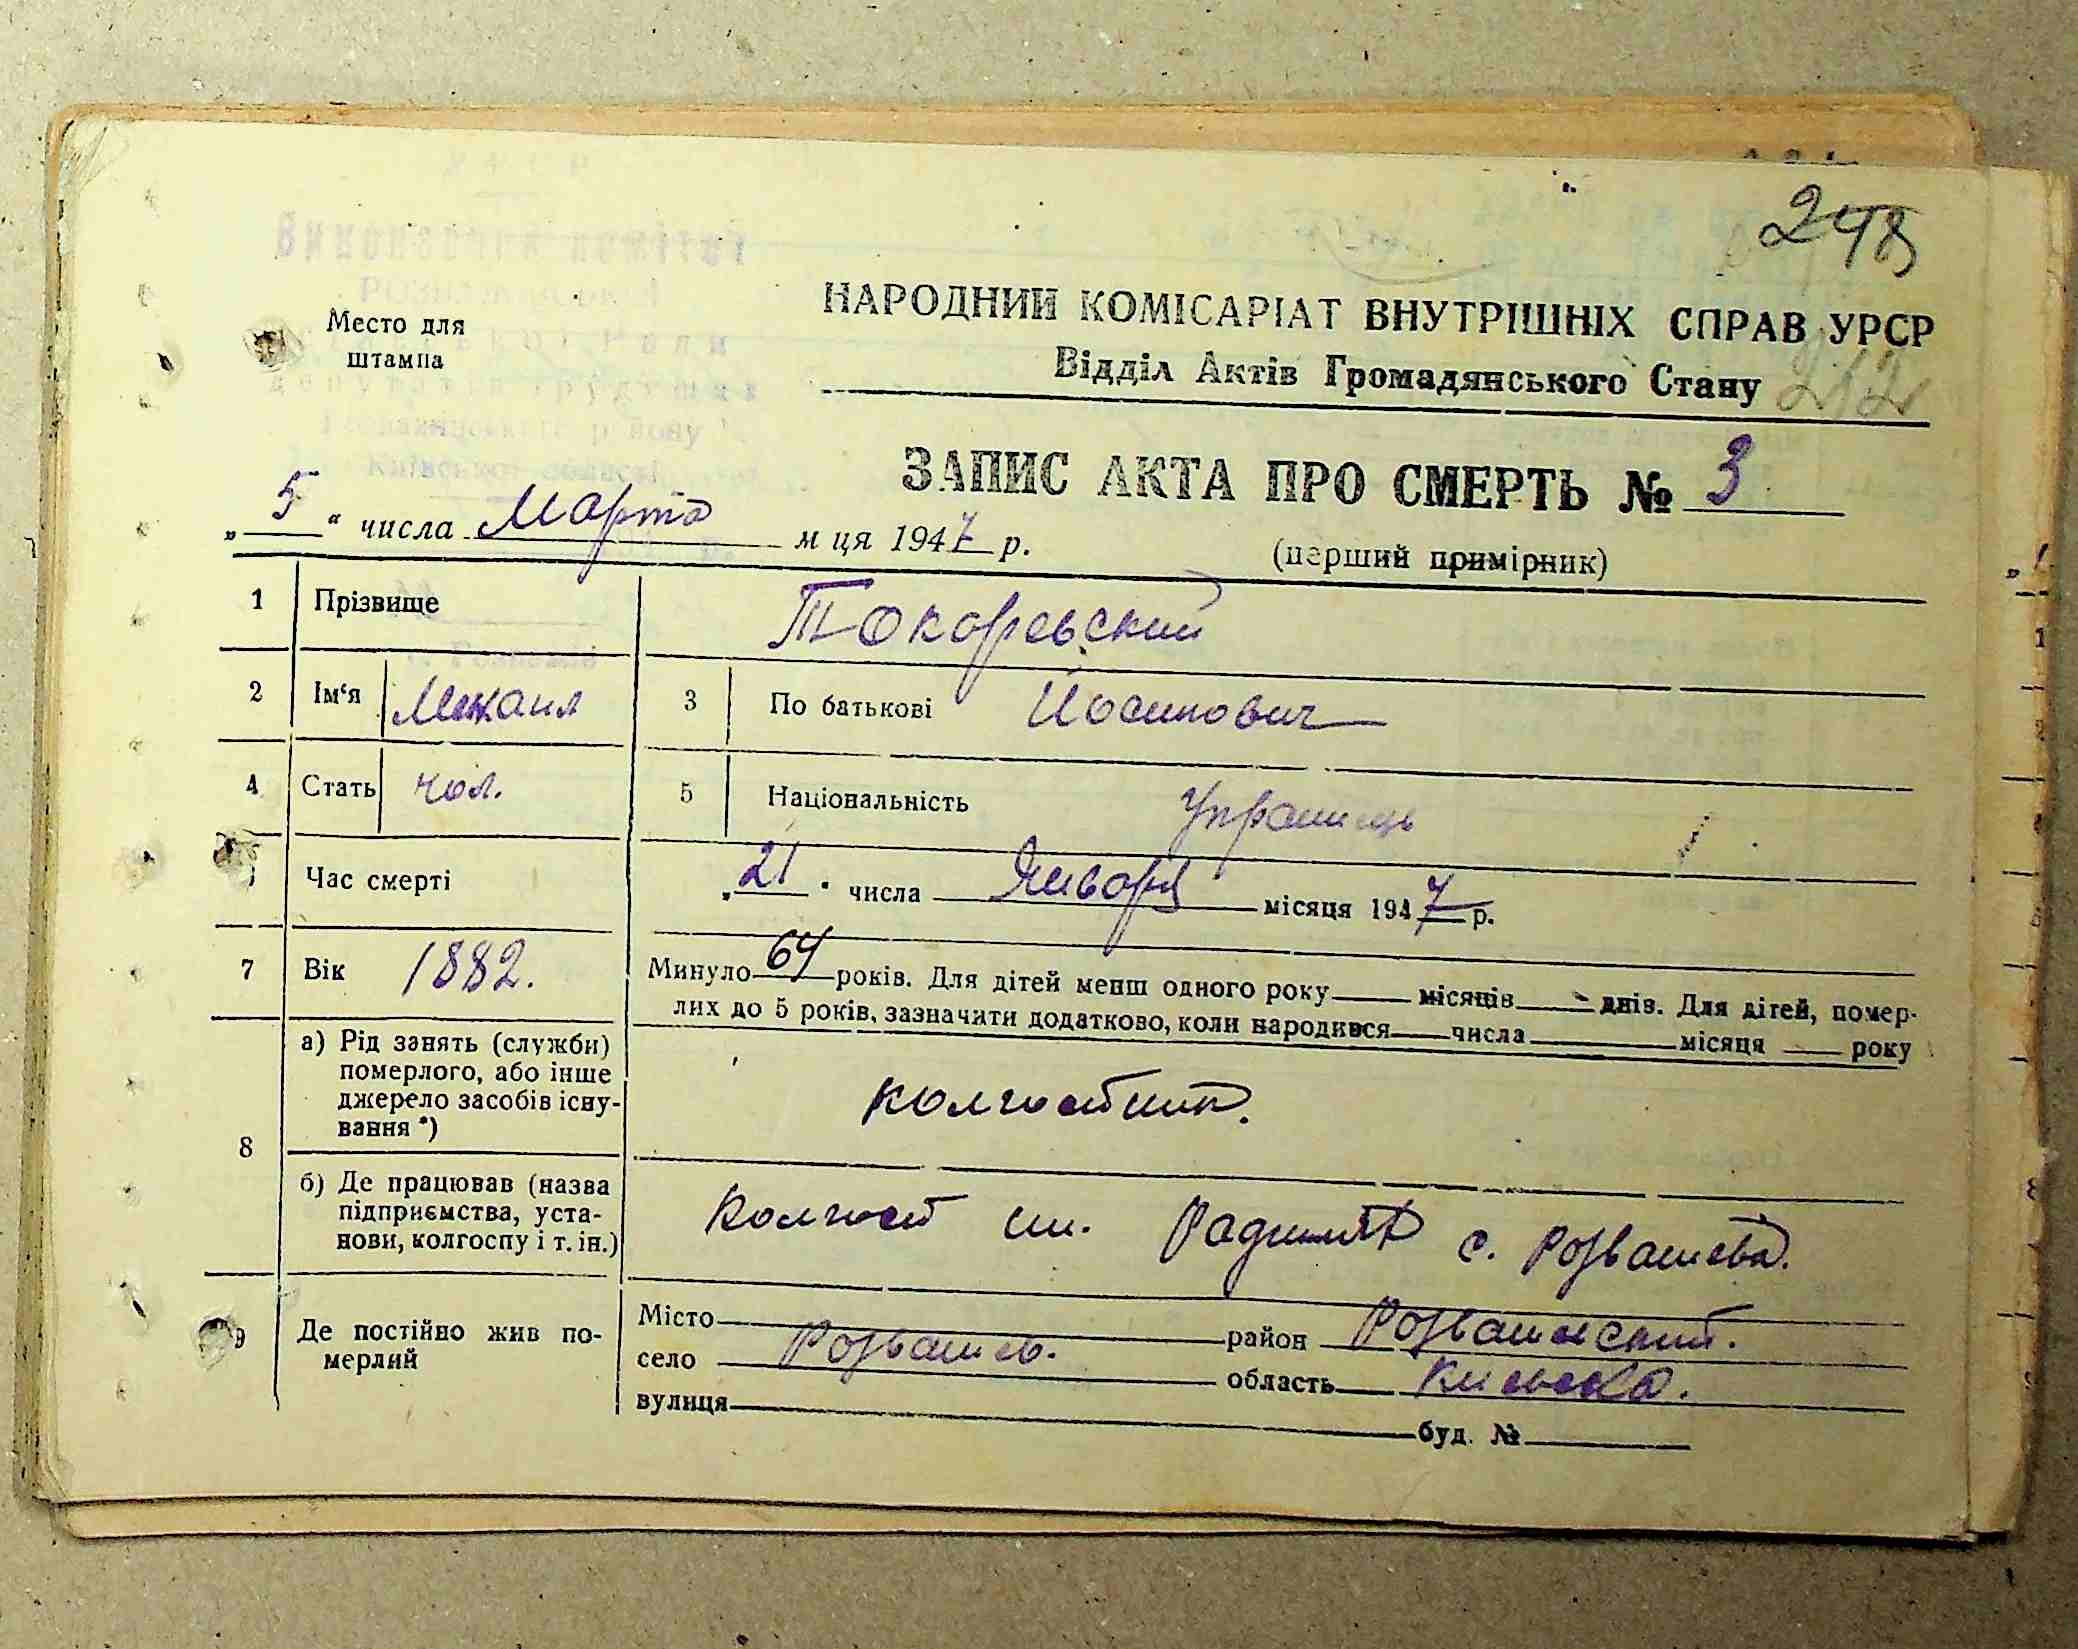 248
Место для
штампа
НАРОДНИЙ КОМІСАРІАТ ВНУТРІШНІХ СПРАВ УРСР
Відділ Актів Громадянського Стану
212
ЗАПИС АКТА ПРО СМЕРТЬ № 3
„5“ числа Марта м ця 1947 р.
(перший примірник)
1 Прізвище Токоревский
2 Ім‘я Михаил 3 По батькові Йосипович
4 Стать чол. 5 Національність Украинець
Час смерті „21“ числа Января місяця 1947 р.
7 Вік 1882. Минуло 64 років. Для дітей менш одного року місяців днів. Для дітей, помер-
лих до 5 років, зазначити додатково, коли народився числа місяця року
8 а) Рід занять (служби)
померлого, або інше
джерело засобів існу-
вання *)
колгоспник.
б) Де працював (назва
підприємства, уста-
нови, колгоспу і т. ін.)
Колгосп им. с. Розважева.
9 Де постійно жив по-
мерлий
Місто район Розважевский.
село Розважев. область Киевска.
вулиця буд. №